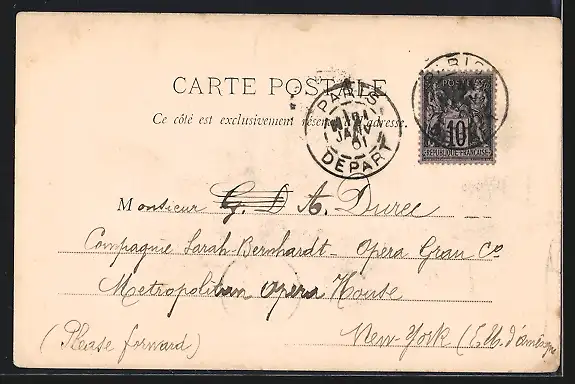 CARTE POSTALE
Ce côté est exclusivement réservé à l'adresse.
PARIS
JANV
01
DEPART
PARIS
POSTES
10
REPUBLIQUE FRANÇAISE
Monsieur G. D A. Durec
Compagnie Sarah-Bernhardt - Opera Grau Co
Metropolitan Opera House
New-York (E.U. d'amérique
(Please forward)